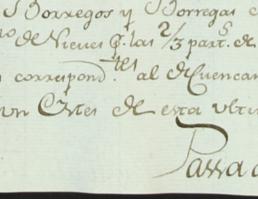 Borregos y Borregas
de Nieves q.e las 2/3 part.s de
correspond.tes al de Cuencam
un C
de esta ulti
Passa